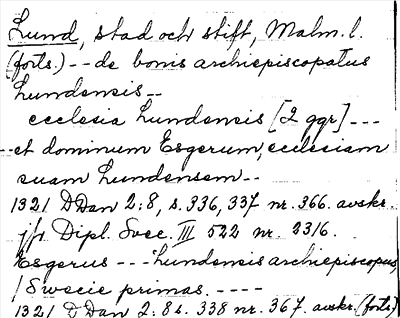 Lund, stad och stift, Malm. l.
(forts.) -- de bonis archiepiscopatus
Lundensis --
ecclesia Lundensis [2 ggr] ---
-- et dominum Esgerum, ecclesiam
suam Lundensem --
1321 DDan 2:8, s. 336, 337 nr. 366. avskr.
jfr Dipl. Svec. III 522 nr. 2316.
Esgerus --- Lundensis archiepiscopus,
/ Swecie primas. ----
1321 DDan 2:8 s. 338 nr. 367. avskr. (forts)